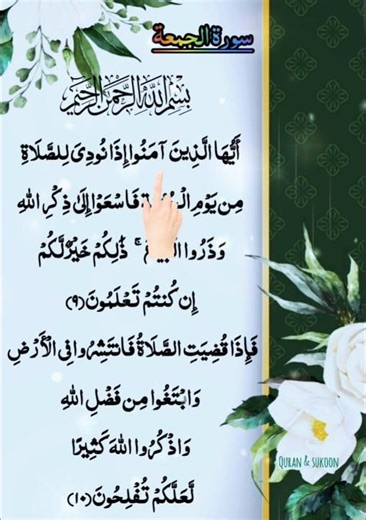 سورة الجمعة
بِسْمِ اللهِ الرَّحْمٰنِ الرَّحِيْمِ
أَيُّهَا الَّذِينَ آمَنُوا إِذَا نُودِيَ لِلصَّلَاةِ
مِن يَوْمِ فَاسْعَوْا إِلَىٰ ذِكْرِ اللهِ
وَذَرُوا ۚ ذَٰلِكُمْ خَيْرٌ لَّكُمْ
إِن كُنتُمْ تَعْلَمُونَ (٩)
فَإِذَا قُضِيَتِ الصَّلَاةُ فَانتَشِرُوا فِي الْأَرْضِ
وَابْتَغُوا مِن فَضْلِ اللهِ
وَاذْكُرُوا اللهَ كَثِيرًا
لَّعَلَّكُمْ تُفْلِحُونَ (١٠)
QURAN & SUKOON